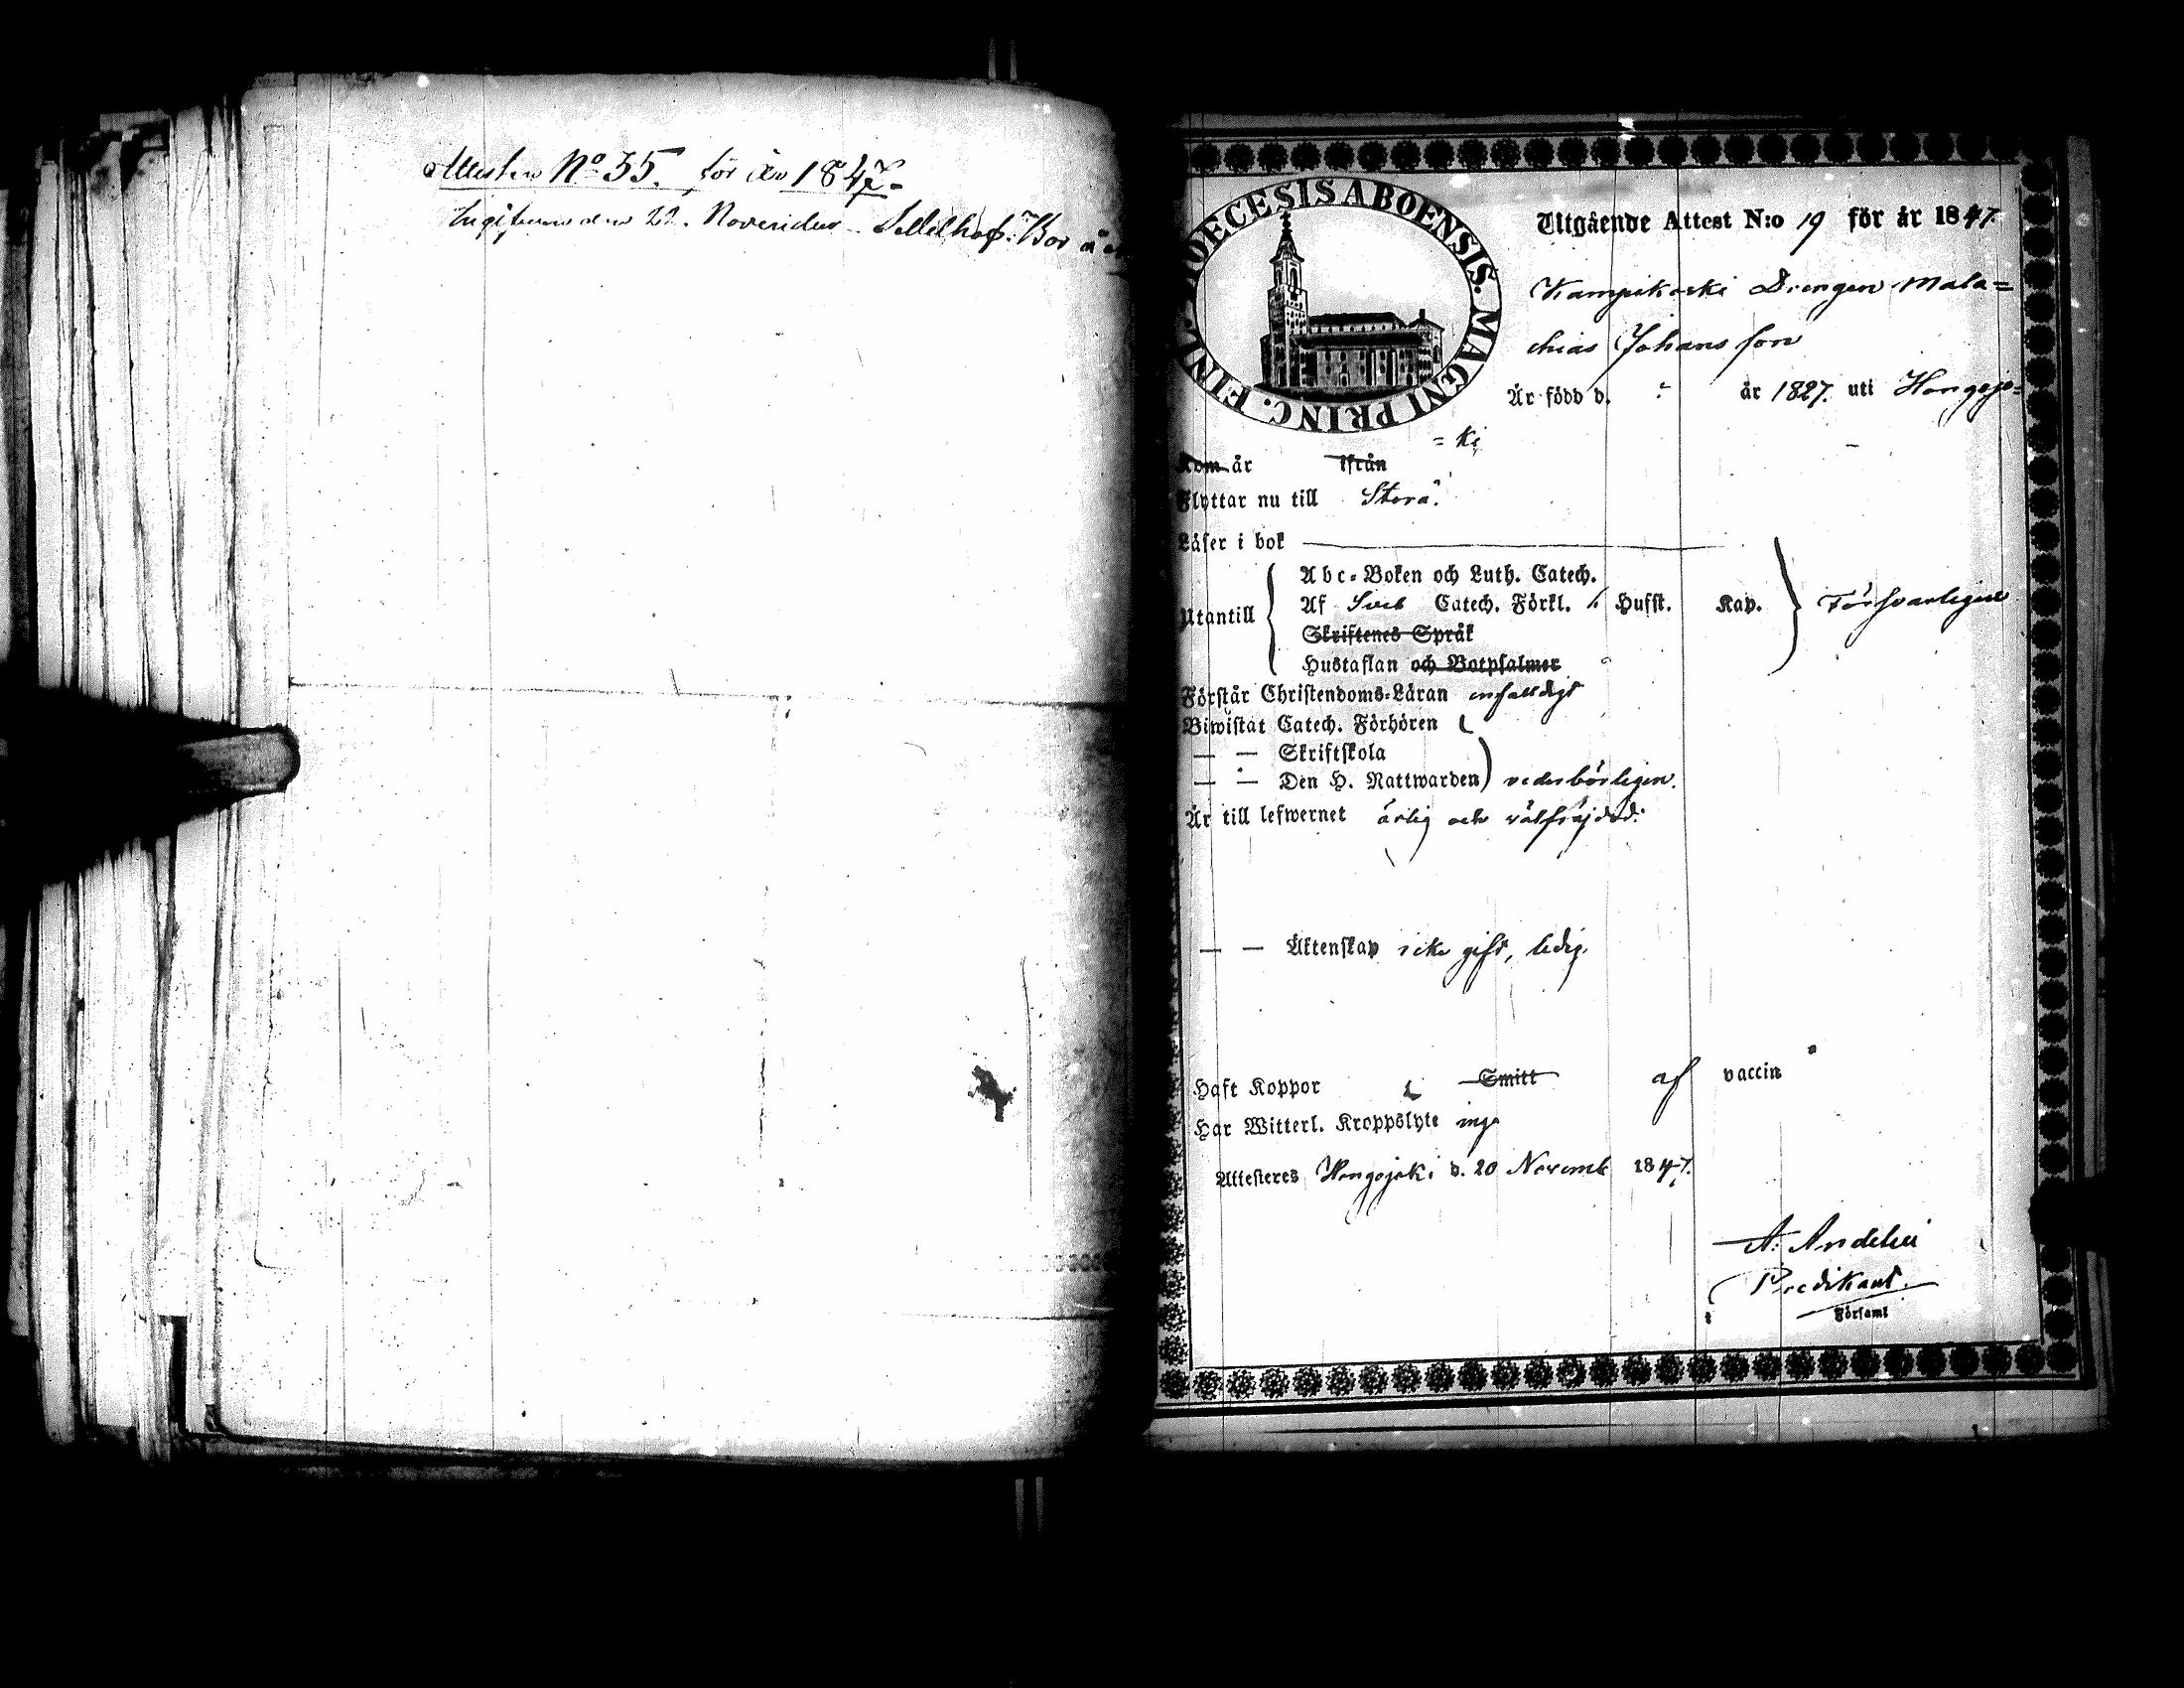 Attesten No 35. för År 1847.
Ingifven den 22. November
FINL. DIOECESIS ABOENSIS. MAGNI PRINC.
Utgående Attest N:o 19 för år 1847.
Kampikoski Drengen Mala=
chias Johansson
Är född d. år 1827. uti Hongojo=
=ki
Kom år ifrån
Flyttar nu till Storå.
Läser i bok
Utantill
Abc-Boken och Luth. Catech.
Af Sveb Catech. Förkl. Husst. Kap. Försvarligen
Skriftenes Språk
Hustaflan och Botpsalmer
Förstår Christendoms-Läran enfaldigt
Biwistat Catech. Förhören
— — Skriftskola
— — Den H. Nattwarden vederbörligen.
Är till lefwernet ärlig och välfräjdad.
— — Äktenskap icke gift, ledig.
Haft Koppor Smitt af vaccin
Har Witterl. Kroppslyte inga
Attesteres Hongojoki d. 20 Novemb 1847.
A. Andelin
Predikant.
i Församl